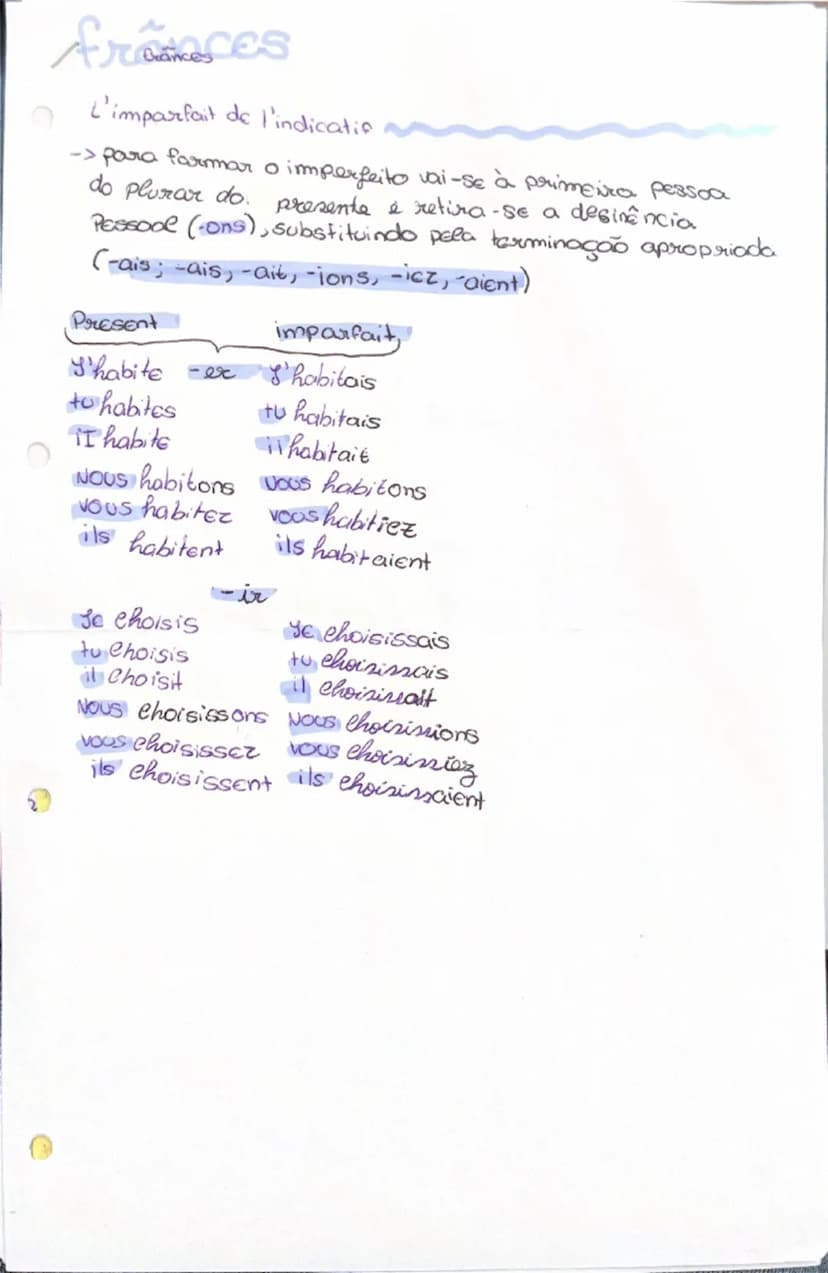 frânces
frânces
L'imparfait de l'indicatif
-> para formar o imperfeito vai-se à primeira pessoa
do plurar do. presente e retira-se a desinência
Pessoal (-ons), substituindo pela terminação apropriada
(-ais; -ais, -ait, -ions, -iez, -aient)
Present imparfait,
J'habite -er J'habitais
tu habites tu habitais
il habite il habitait
Nous habitons vous habitons
vous habitez vous habitiez
ils habitent ils habitaient
-ir
Je choisis Je choisissais
tu choisis tu choisissais
il choisit il choisissait
Nous choisissons Nous choisissions
vous choisissez vous choisissiez
ils choisissent ils choisissaient